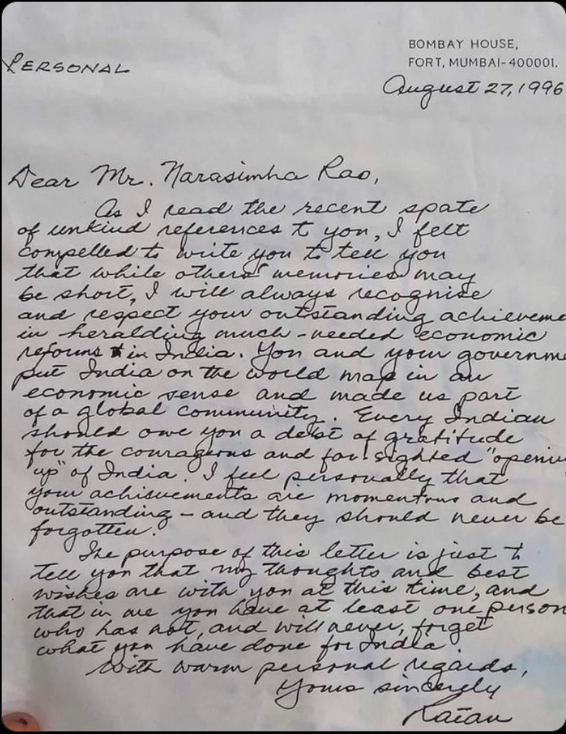 BOMBAY HOUSE,
FORT, MUMBAI-400001.
PERSONAL
August 27, 1996
Dear Mr. Narasimha Rao,
As I read the recent spate
of unkind references to you, I felt
compelled to write you to tell you
that while others' memories may
be short, I will always recognise
and respect your outstanding achieveme
in heralding much-needed economic
reforms in India. You and your governme
put India on the world map in an
economic sense and made us part
of a global community. Every Indian
should owe you a debt of gratitude
for the courageous and far sighted "openin
up" of India. I feel personally that
your achievements are momentous and
outstanding - and they should never be
forgotten.
The purpose of this letter is just to
tell you that my thoughts and best
wishes are with you at this time, and
that in me you have at least one person
who has not, and will never, forget
what you have done for India.
With warm personal regards,
Yours sincerely
Ratan